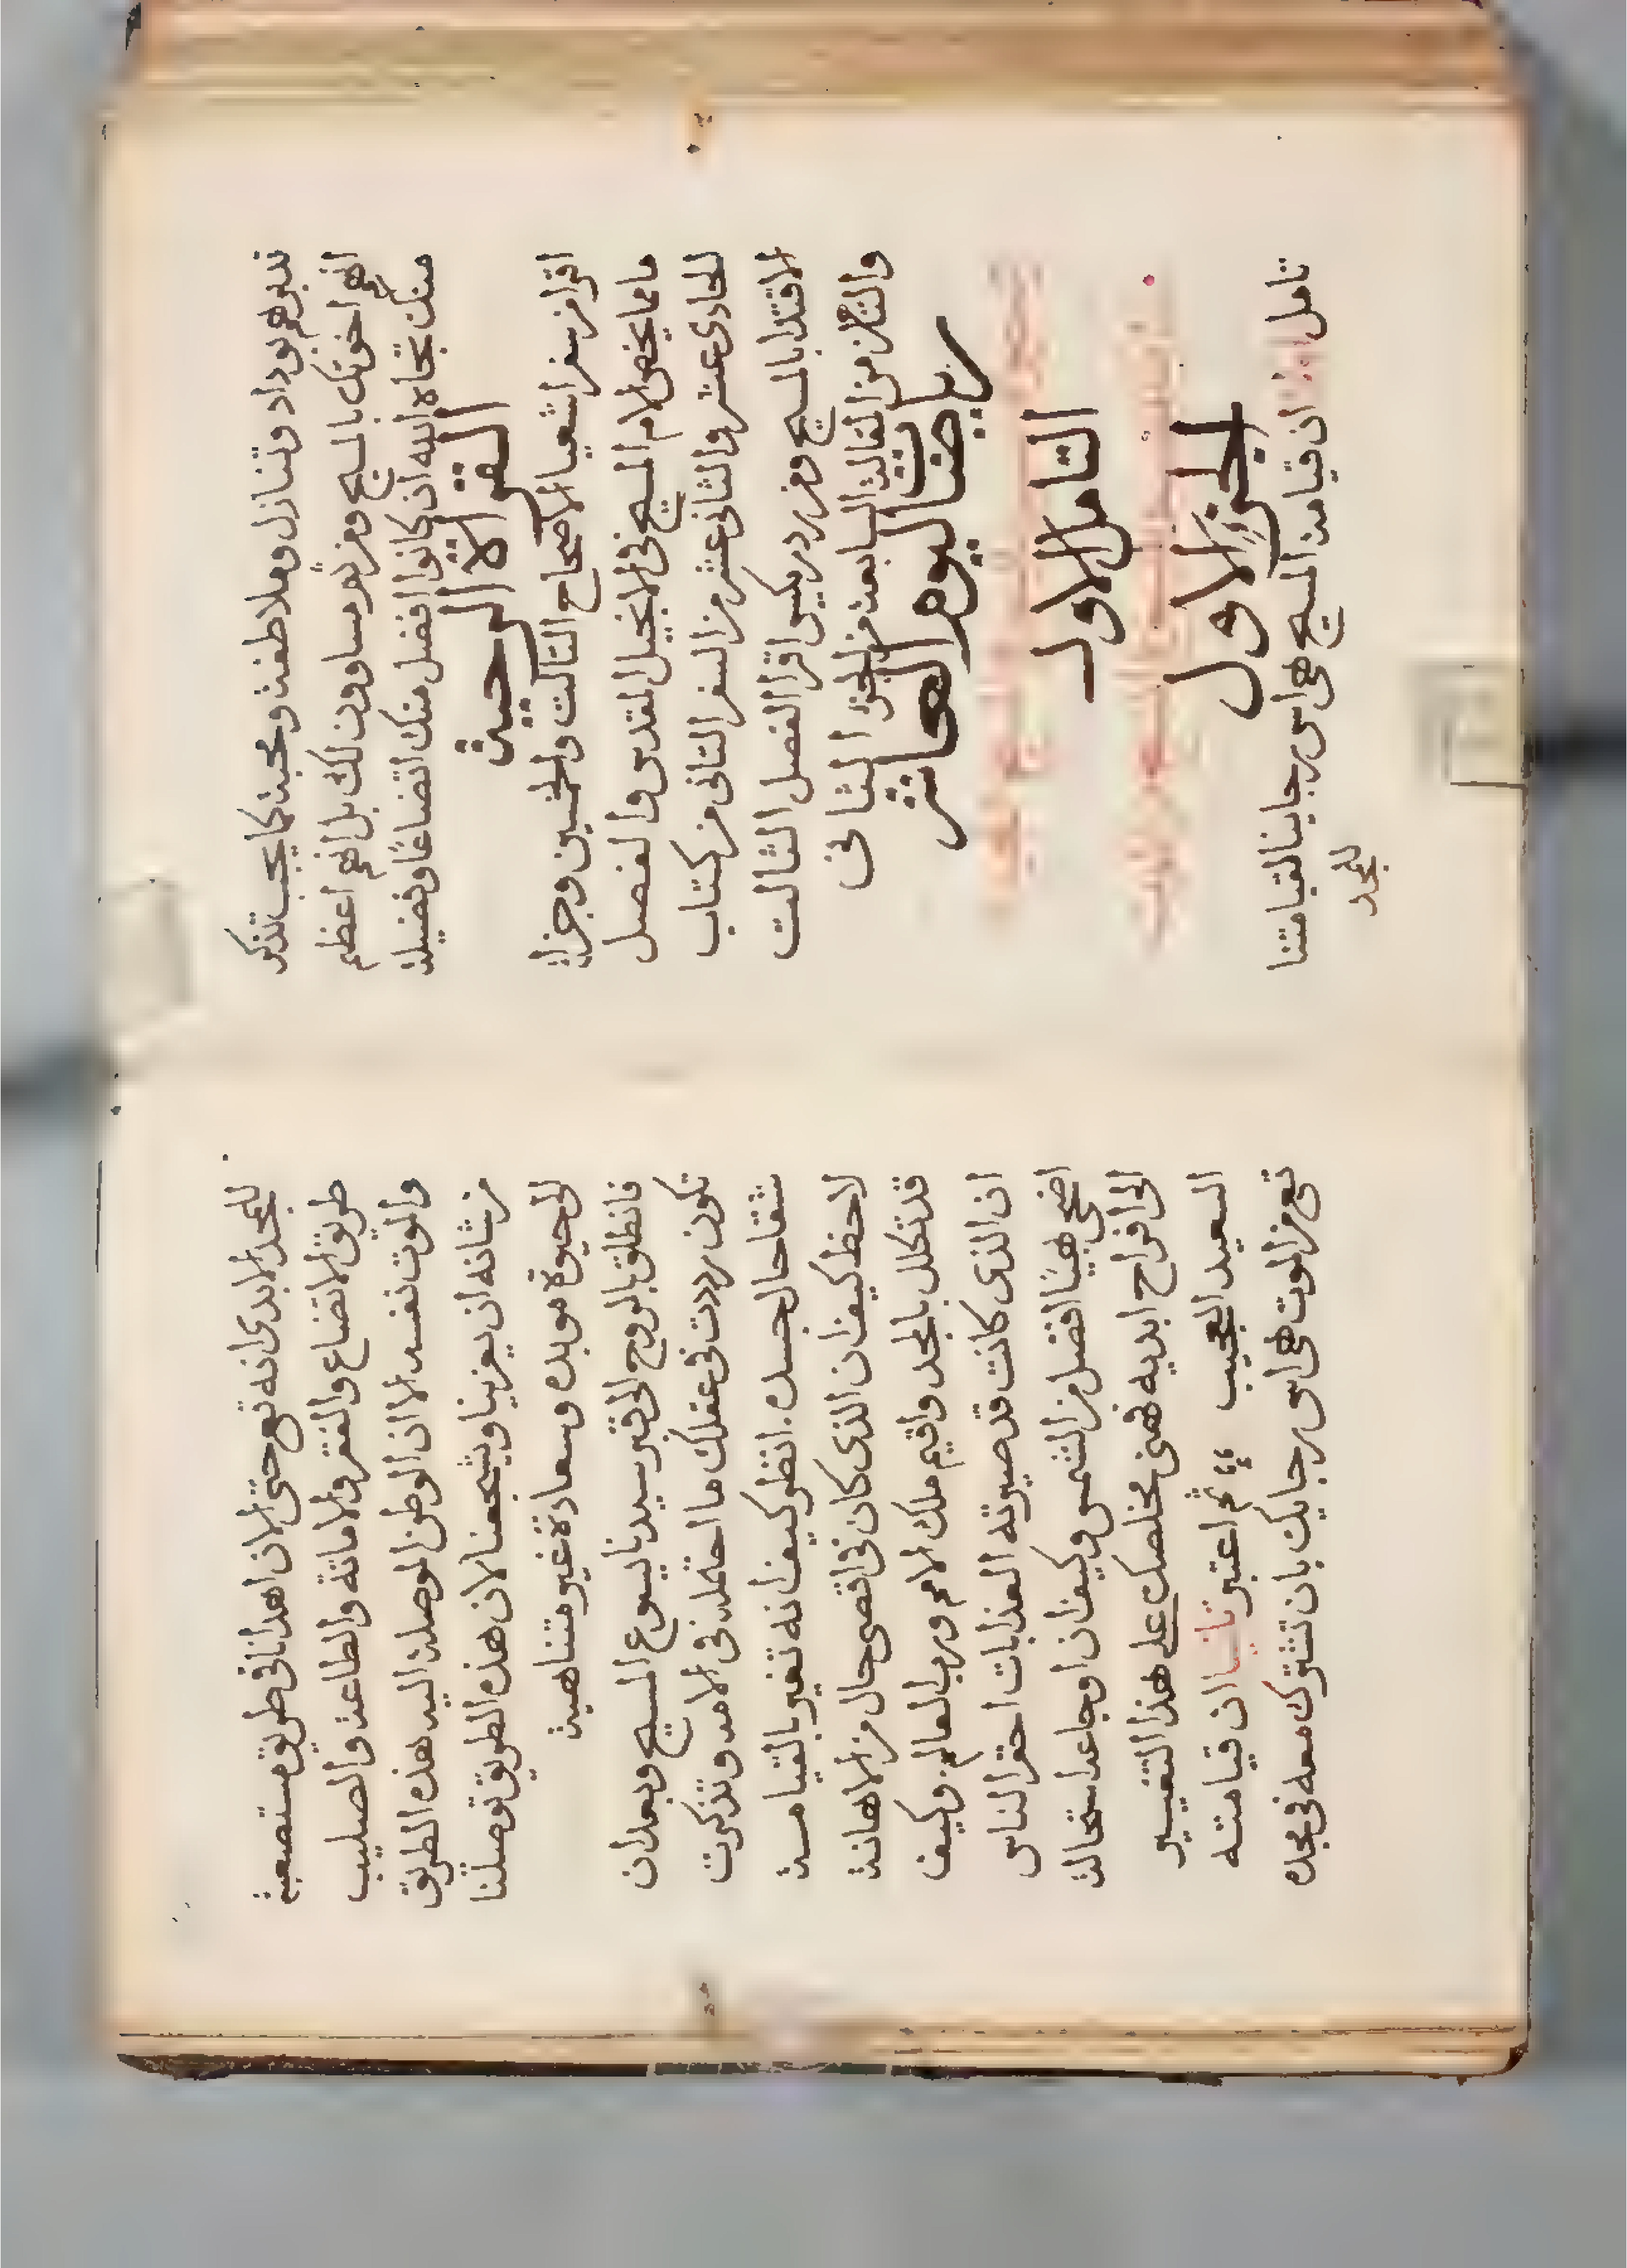 تدبرهم بوداد وتنازل وملاطفة ومحبة كما يجب تذكر
انهم اخوتك بالمسيح ومن ثم مساوون لك بل انهم اعظم
منك تجاه الله ان كانوا افضل منك اتضاعًا وفضيلة
القراة الرحية
اقرا من سفر اشعيا الاصحاح الثالث والخمسين وجزاة
ما مما يخص الام المسيح في الانجيل المقدس والفصل
الحادى عشر والثانى عشر من السفر الثانى من كتاب
الاقتدا بالمسيح ومن ردريكس اقرا الفصل الثالث
والثامن من المقالة السابعة من الجزء الثانى
رياضات اليوم العاشر
التامل الاول
الجزء الاول
تامل اولا ان قيامة المسيح هى اس رجاينا لقيامتنا
للمجد
للمجد الابدى انه تع حتى الان اهدانا فى طريق مستصعبة
طريق الاتضاع والفقر والاماتة والطاعة والصليب
والموت نفسه الا ان الوطن الموصلة اليه هذه الطريق
من شانه ان يعزينا ويشجعنا لان هذه الطريق توصلنا
الى حيوة موبده وسعادة غير متناهية
فانطلق بالروح الى قبر سيدنا يسوع المسيح وبعد ان
تكون رددت فى عقلك ما احتمله فى الامه وتذكرت
شقا حال جسده. انظر كيف انه تغير بالقيامة
لاحظ كيف ان الذى كان فى اقصى حال من الاهانة
قد تكلل بالمجد واقيم ملك الامم ورب العالم. وكيف
ان الذى كانت قد صيرته العذابات احقر الناس
اضحى بهيًا افضل من الشمس وكيف ان اوجاعه استحالت
الى افراح ابديه فهنى مخلصك على هذا التغيير
السعيد العجيب ثم اعتبر ثانيا ان قيامته
تع من الموت هى اس رجايك بان تشترك معه فى مجده